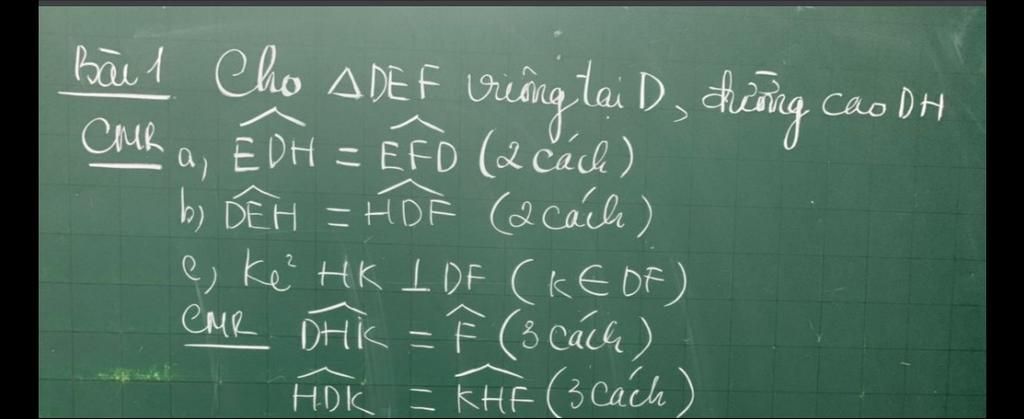 Bài 1 Cho △DEF vuông tại D, đường cao DH
CMR a, \widehat{EDH} = \widehat{EFD} (2 cách)
b) \widehat{DEH} = \widehat{HDF} (2 cách)
c) Kẻ HK ⊥ DF (K ∈ DF)
CMR \widehat{DHK} = \widehat{F} (3 cách)
\widehat{HDK} = \widehat{KHF} (3 cách)